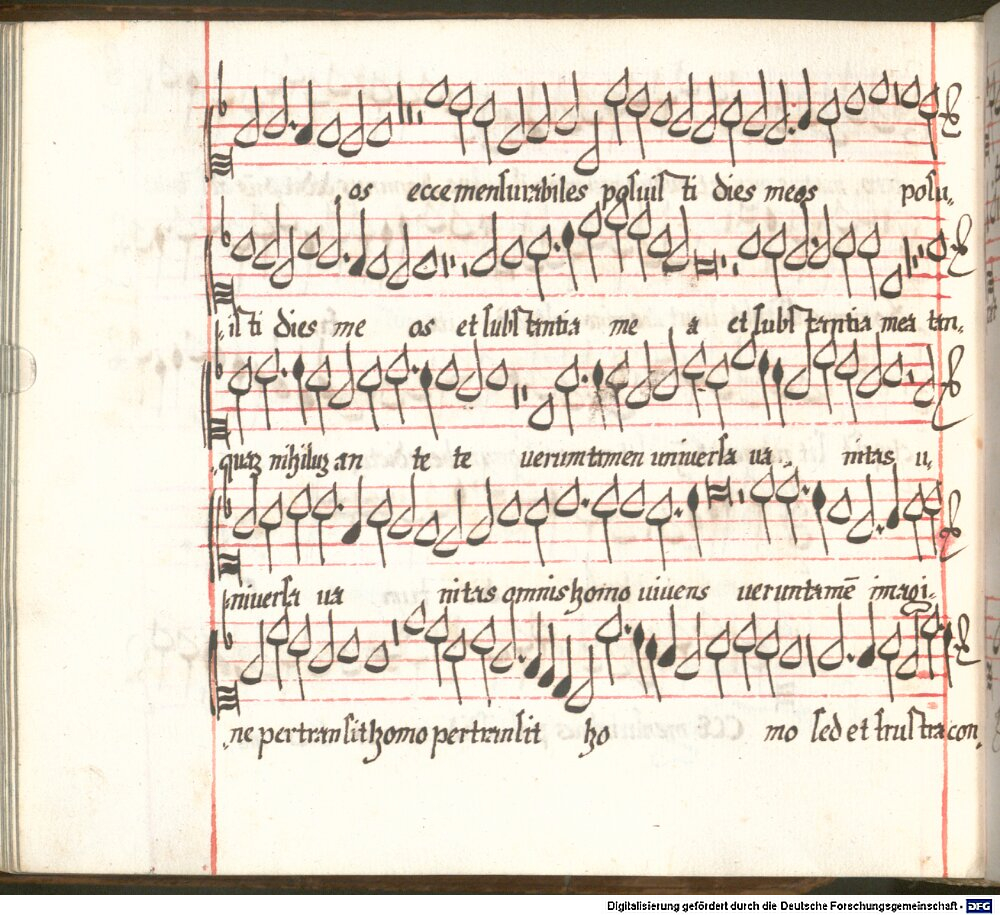 os ecce mensurabiles posuisti dies meos posu,
isti dies me os et substantia me a et substantia mea tan,
quaʒ nihiluʒ an te te uerumtamen uniuersa ua nitas u,
niuersa ua nitas omnis homo uiuens ueruntamē imagi,
ne pertransit homo pertransit ho mo sed et frustra con,
Digitalisierung gefördert durch die Deutsche Forschungsgemeinschaft - DFG